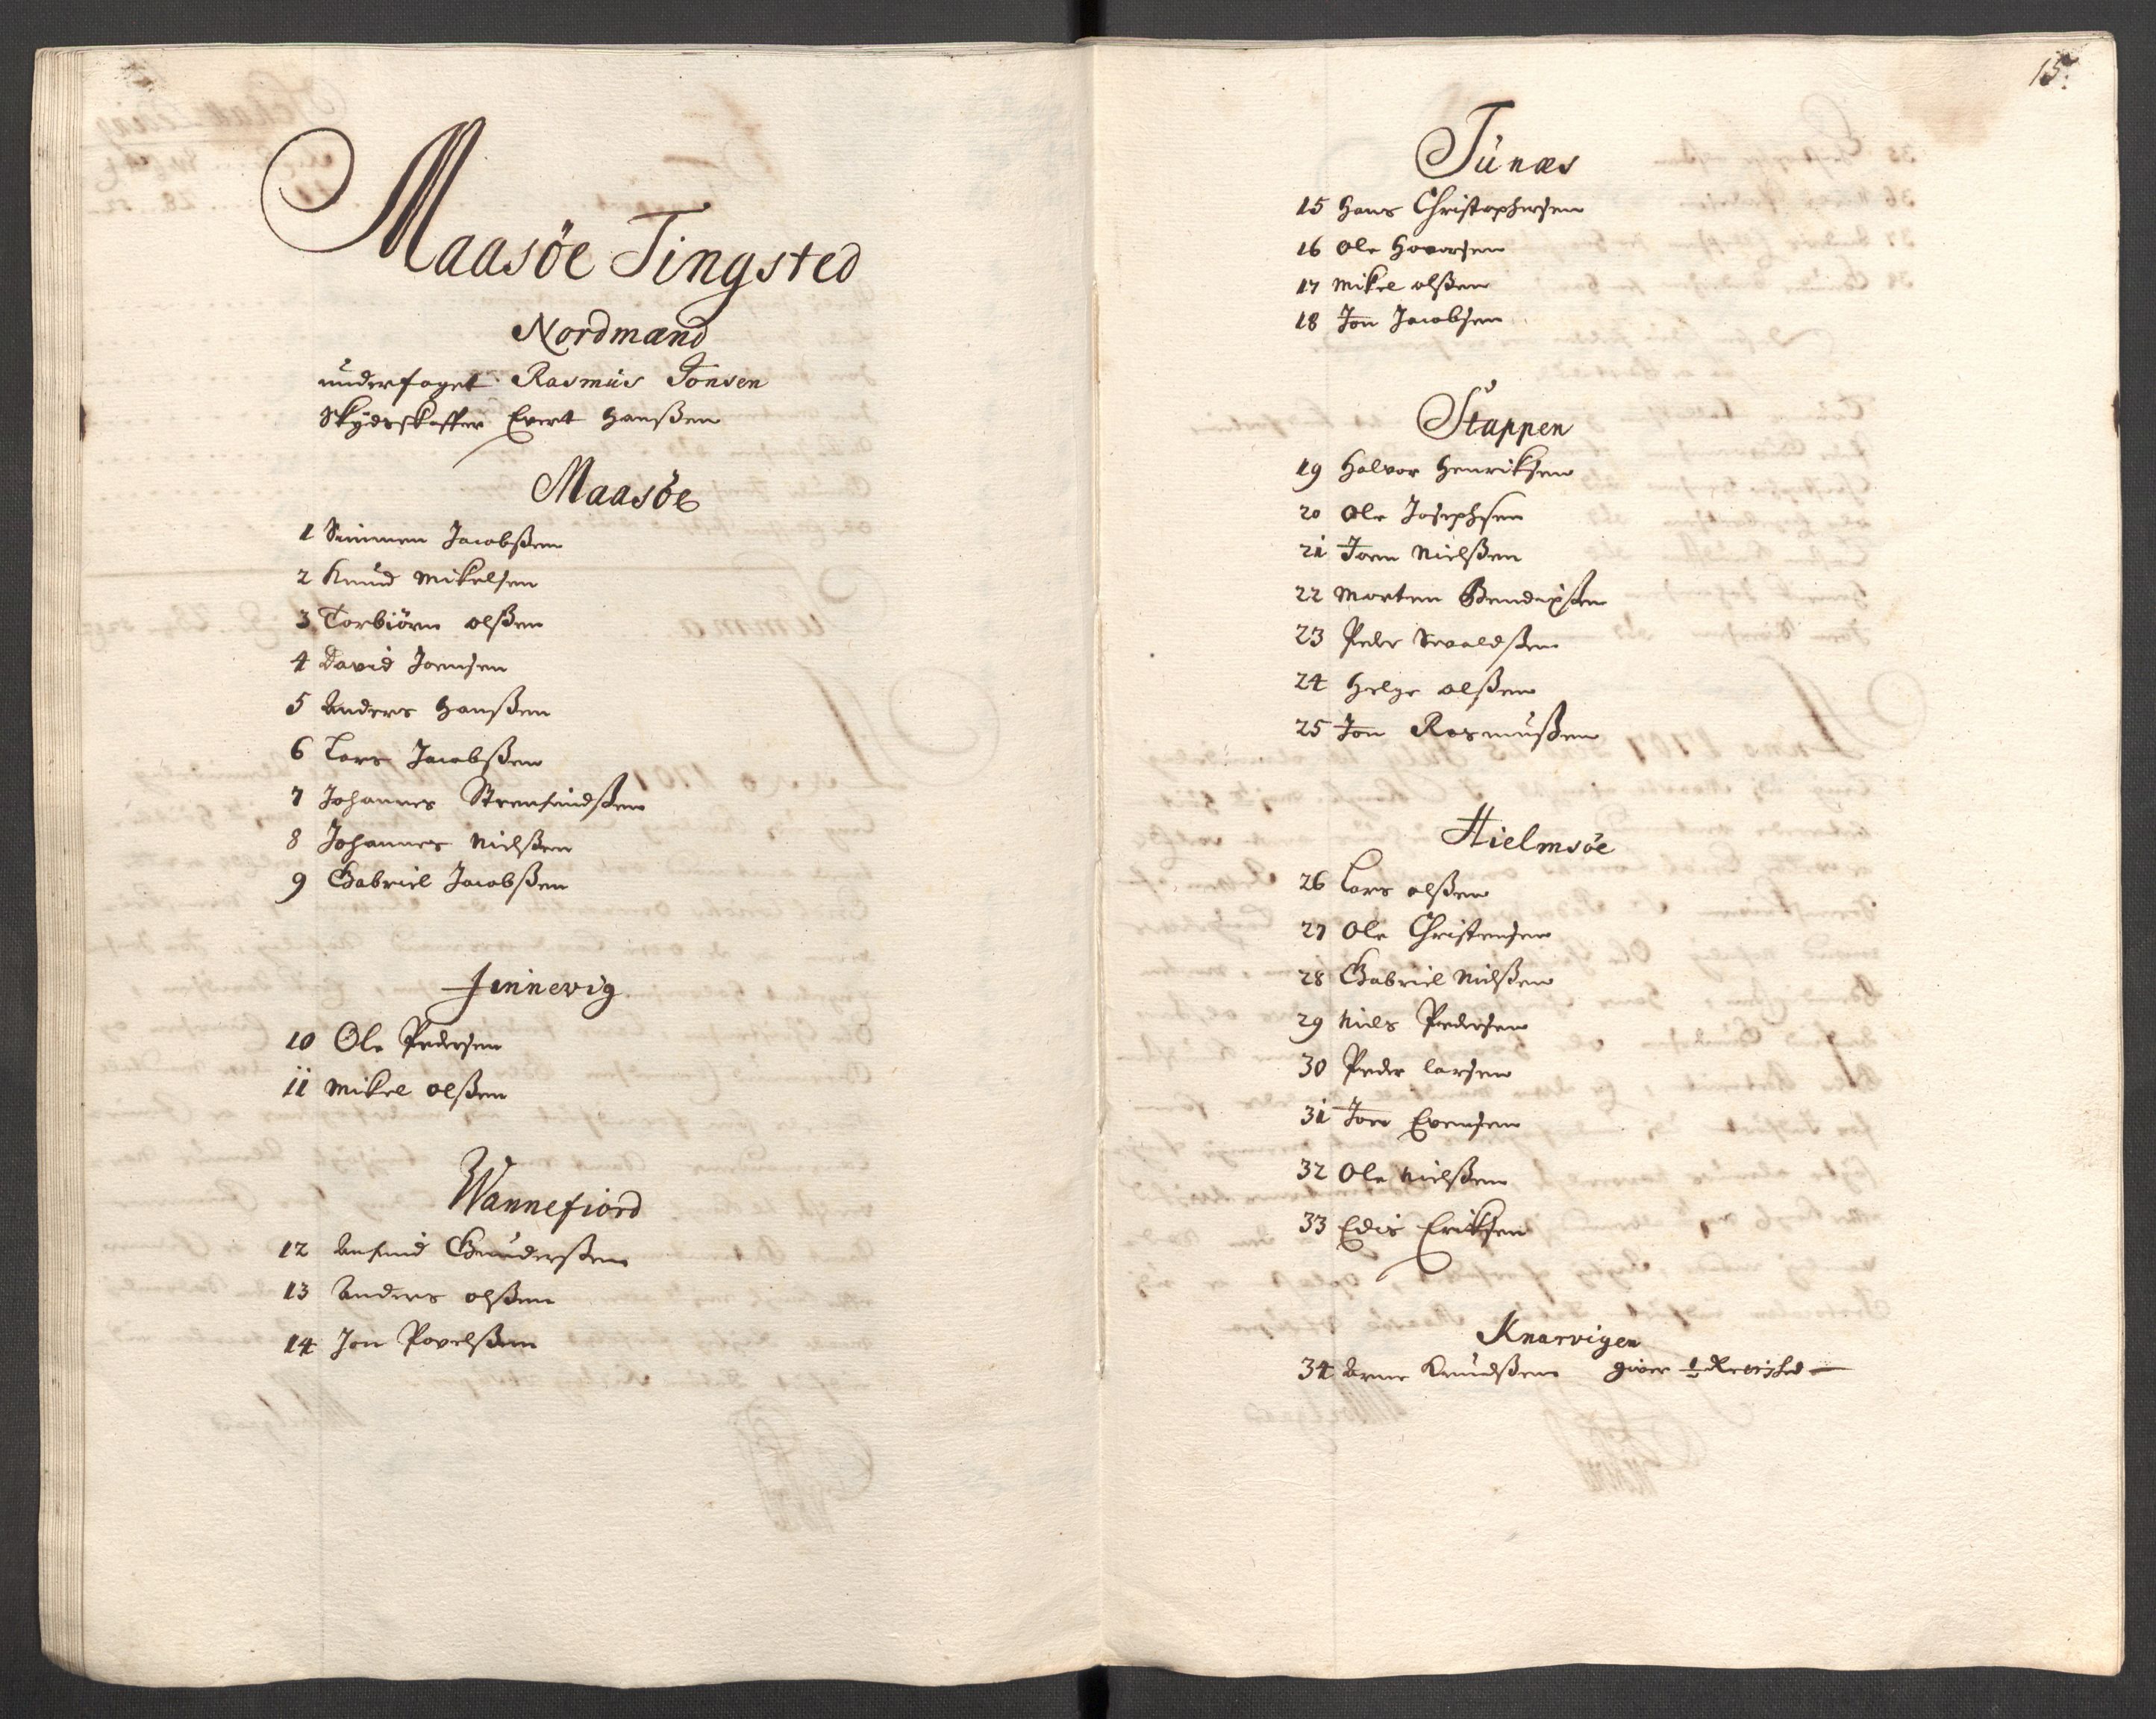 Maasöe Tingsted
Nordmænd
underfoget Rasmus Jonsen
Skydsskaffer Evert Hanßen
Maasöe
1 Simmen Jacobßen
2 Knud Mikelsen
3 Torbiörn olßen
4 David Joensen
5 Anders Hanßen
6 Lars Jacobßen
7 Johannes
8 Johannes Nielßen
9 Gabriel Jacobßen
Finnevig
10 Ole Pedersen
11 Mikel olßen
Wannefiord
12 Anfind Gunderßen
13 Anders olßen
14 Jon Povelßen
15.
Tunæs
15 Hans Christophersen
16 Ole Haaorsen
17 Mikel olßen
18 Jon Jacobsen
Stappen
19 Halvor Henriksen
20 Ole Josephsen
21 Joen Nielßen
22 Morten Bendixßen
23 Peder
24 Helge olßen
25 Jon Rasmußen
Hielmsöe
26 Lars olßen
27 Ole Christensen
28 Gabriel Nielßen
29 Niels Pedersen
30 Peder larsen
31 Joen Evensen
32 Ole Nielßen
33 Edis Eriksen
Knarvigen
34 Arne Knudßen giver ½